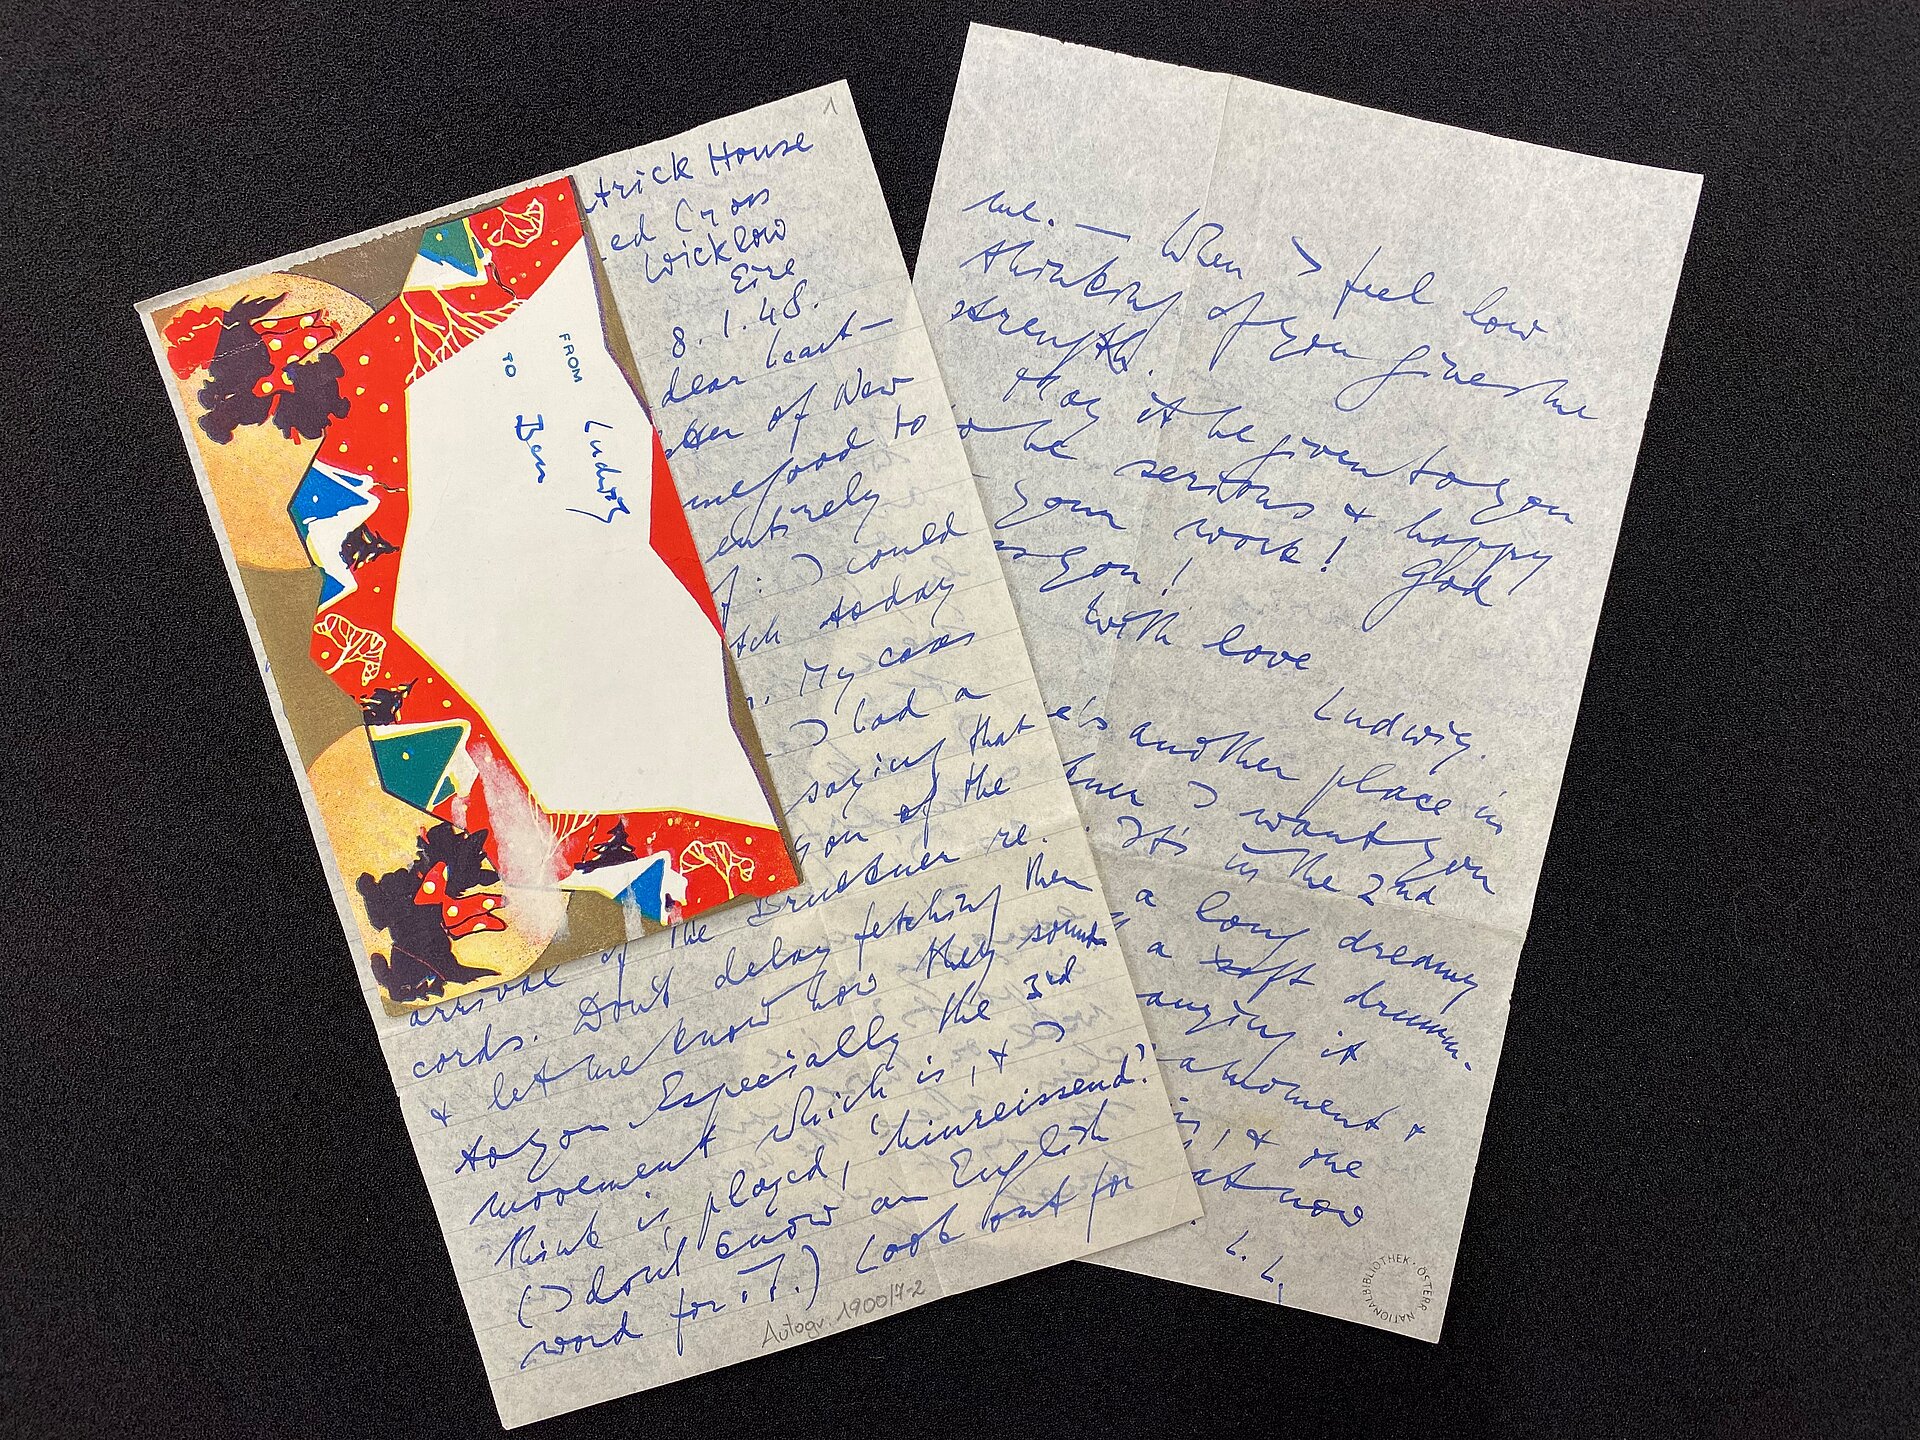 1
trick House
ed Cross
Wicklow
Eire
8.1.48.
dear heart—
of New
good to
entirely
I could
tch today
My
I had a
saying that
you of the
arrival of the Bruckner re.
cords. Don't delay fetching them
& let me know how they sound
to you. Especially the 3rd
movement which is, & I
think is played, 'hinreissend'.
(I don't know an English
word for it.) Look out for
Autogr. 1900/7-2
FROM Ludwig
TO Ben
me. — When I feel low
thinking of you gives me
strength.
May it be given to you
to be serious & happy
your work! God
you!
With love
Ludwig.
is another place in
I want you
It's in the 2nd
a long dreamy
a soft drumm.
it
a moment &
, & the
at now
L.
ÖSTERR NATIONALBIBLIOTHEK